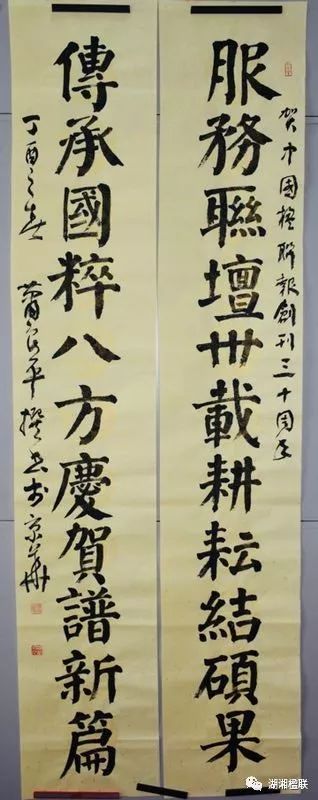 贺中國楹聯報創刊三十周年
服務聯壇卅載耕耘結碩果
傳承國粹八方慶賀譜新篇
丁酉之春 平撰书於京華
湖湘楹联